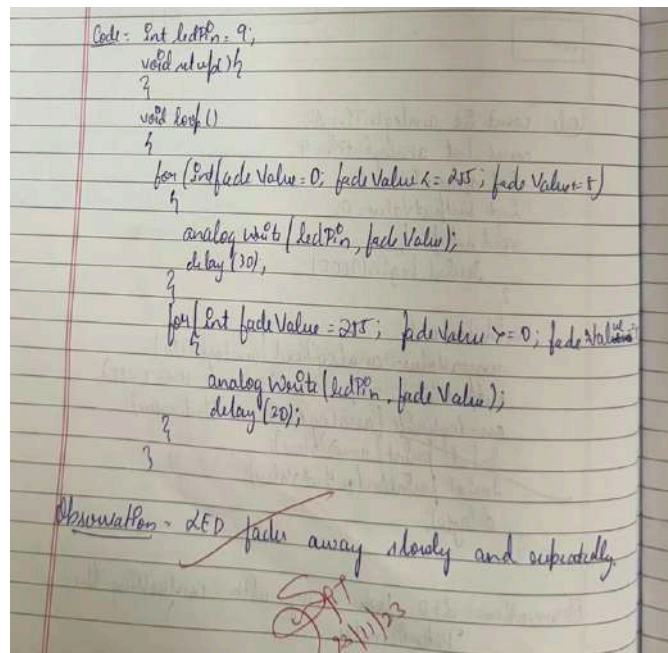 Code: Int ledPin = 9;
void setup() {
}
void loop()
{
for (Int fade Value = 0; fade Value <= 255; fade Value += 5)
{
analog write (ledPin, fade Value);
delay (30);
}
for (Int fade Value = 255; fade Value >= 0; fade Value
{
analog Write (ledPin, fade Value);
delay (30);
}
}
Observation - LED fades away slowly and repeatedly.
23/11/23